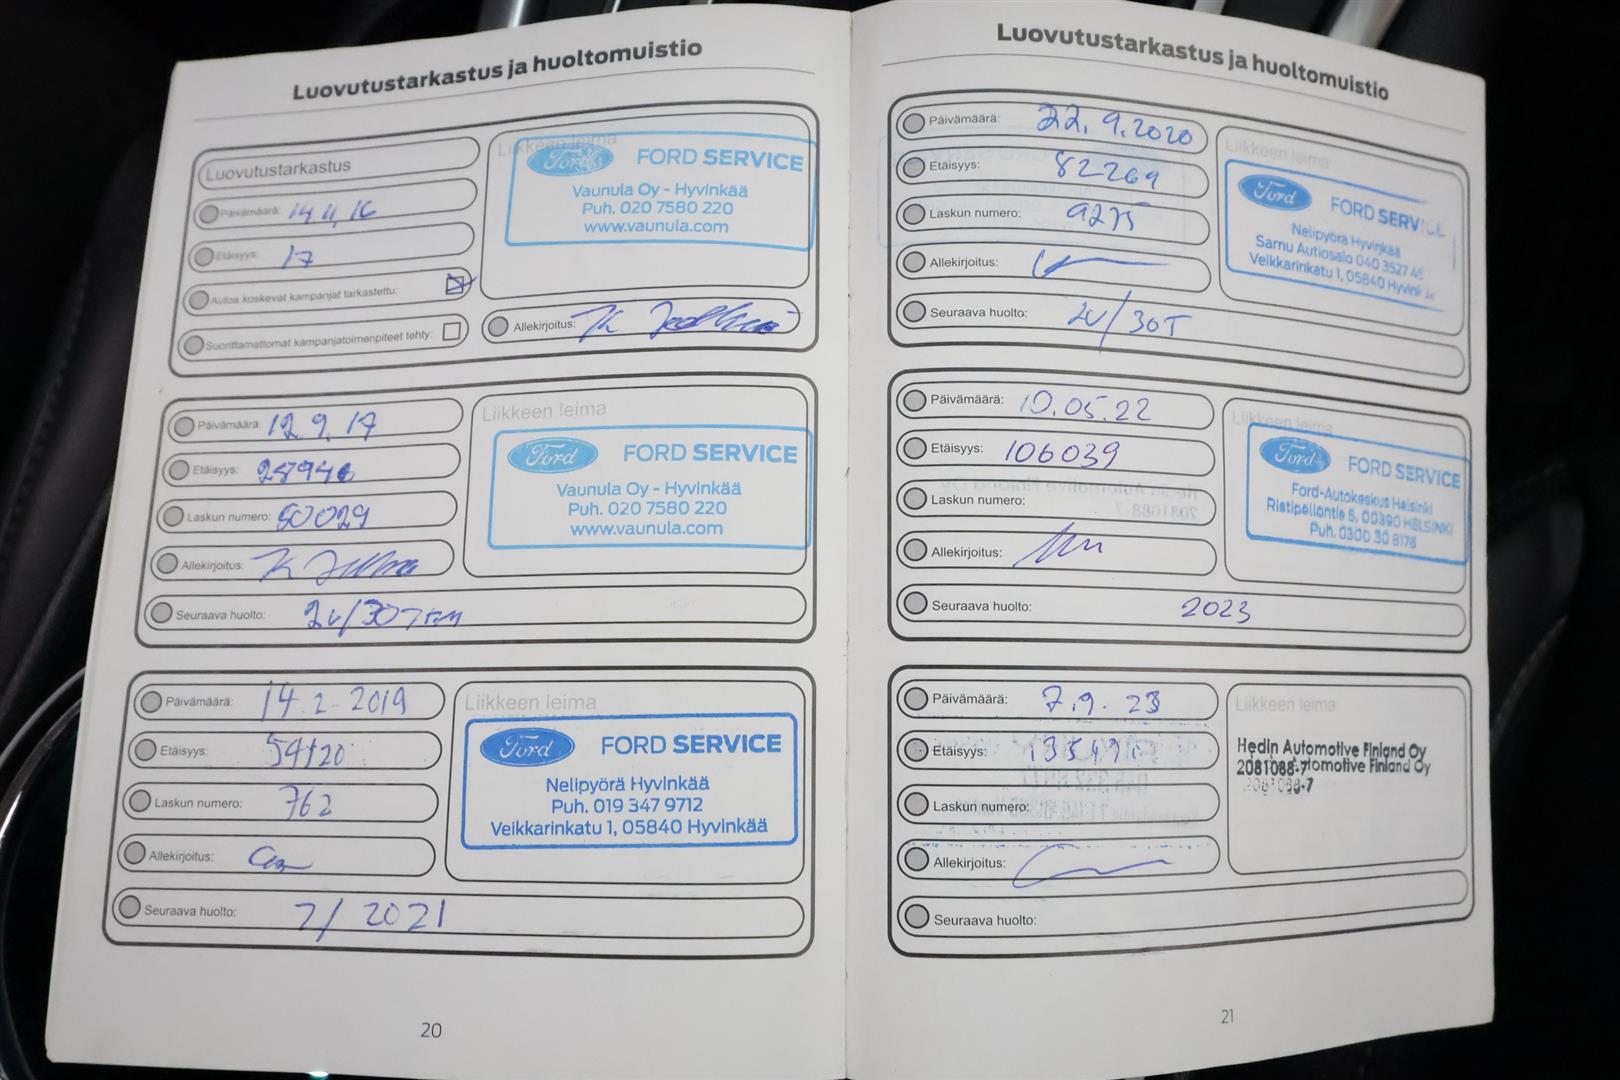 Luovutustarkastus ja huoltomuistio
Luovutustarkastus
Päivämäärä: 14.4.16
Etäisyys: 17
Autoa koskevat kampanjat tarkastettu:
Suorittamattomat kampanjatoimenpiteet tehty:
Liikkeen leima
Ford FORD SERVICE
Vaunula Oy - Hyvinkää
Puh. 020 7580 220
www.vaunula.com
Allekirjoitus:
Päivämäärä: 12.9.17
Etäisyys:
Laskun numero: 50029
Allekirjoitus:
Seuraava huolto:
Liikkeen leima
Ford FORD SERVICE
Vaunula Oy - Hyvinkää
Puh. 020 7580 220
www.vaunula.com
Päivämäärä: 14.2.2019
Etäisyys: 54120
Laskun numero: 762
Allekirjoitus:
Seuraava huolto: 2/2021
Liikkeen leima
Ford FORD SERVICE
Nelipyörä Hyvinkää
Puh. 019 347 9712
Veikkarinkatu 1, 05840 Hyvinkää
20
Luovutustarkastus ja huoltomuistio
Päivämäärä: 22.9.2020
Etäisyys: 82269
Laskun numero: 9275
Allekirjoitus:
Seuraava huolto: 2v/30T
Liikkeen leima
Ford FORD SERVICE
Nelipyörä Hyvinkää
Samu Autiosalo 040 3527
Veikkarinkatu 1, 05840 Hyvinkää
Päivämäärä: 10.05.22
Etäisyys: 106039
Laskun numero:
Allekirjoitus:
Seuraava huolto: 2023
Liikkeen leima
Ford FORD SERVICE
Ford-Autokeskus Helsinki
Ristipellontie 5, 00390 HELSINKI
Puh. 0300 30 8178
Päivämäärä: 7.9.23
Etäisyys:
Laskun numero:
Allekirjoitus:
Seuraava huolto:
Liikkeen leima
Hedin Automotive Finland Oy
2081088-7 Automotive Finland Oy
2081088-7
21